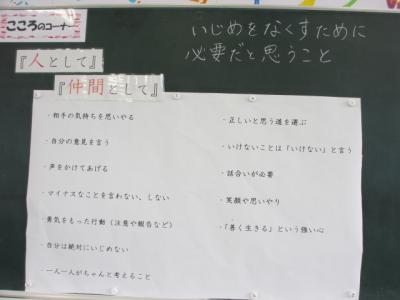 こころのコーナー
いじめをなくすために
必要だと思うこと
『人として』
『仲間として』
・相手の気持ちを思いやる
・自分の意見を言う
・声をかけてあげる
・マイナスなことを言わない、しない
・勇気をもった行動（注意や報告など）
・自分は絶対にいじめない
・一人一人がちゃんと考えること
・正しいと思う道を選ぶ
・いけないことは「いけない」と言う
・話合いが必要
・笑顔や思いやり
・「善く生きる」という強い心